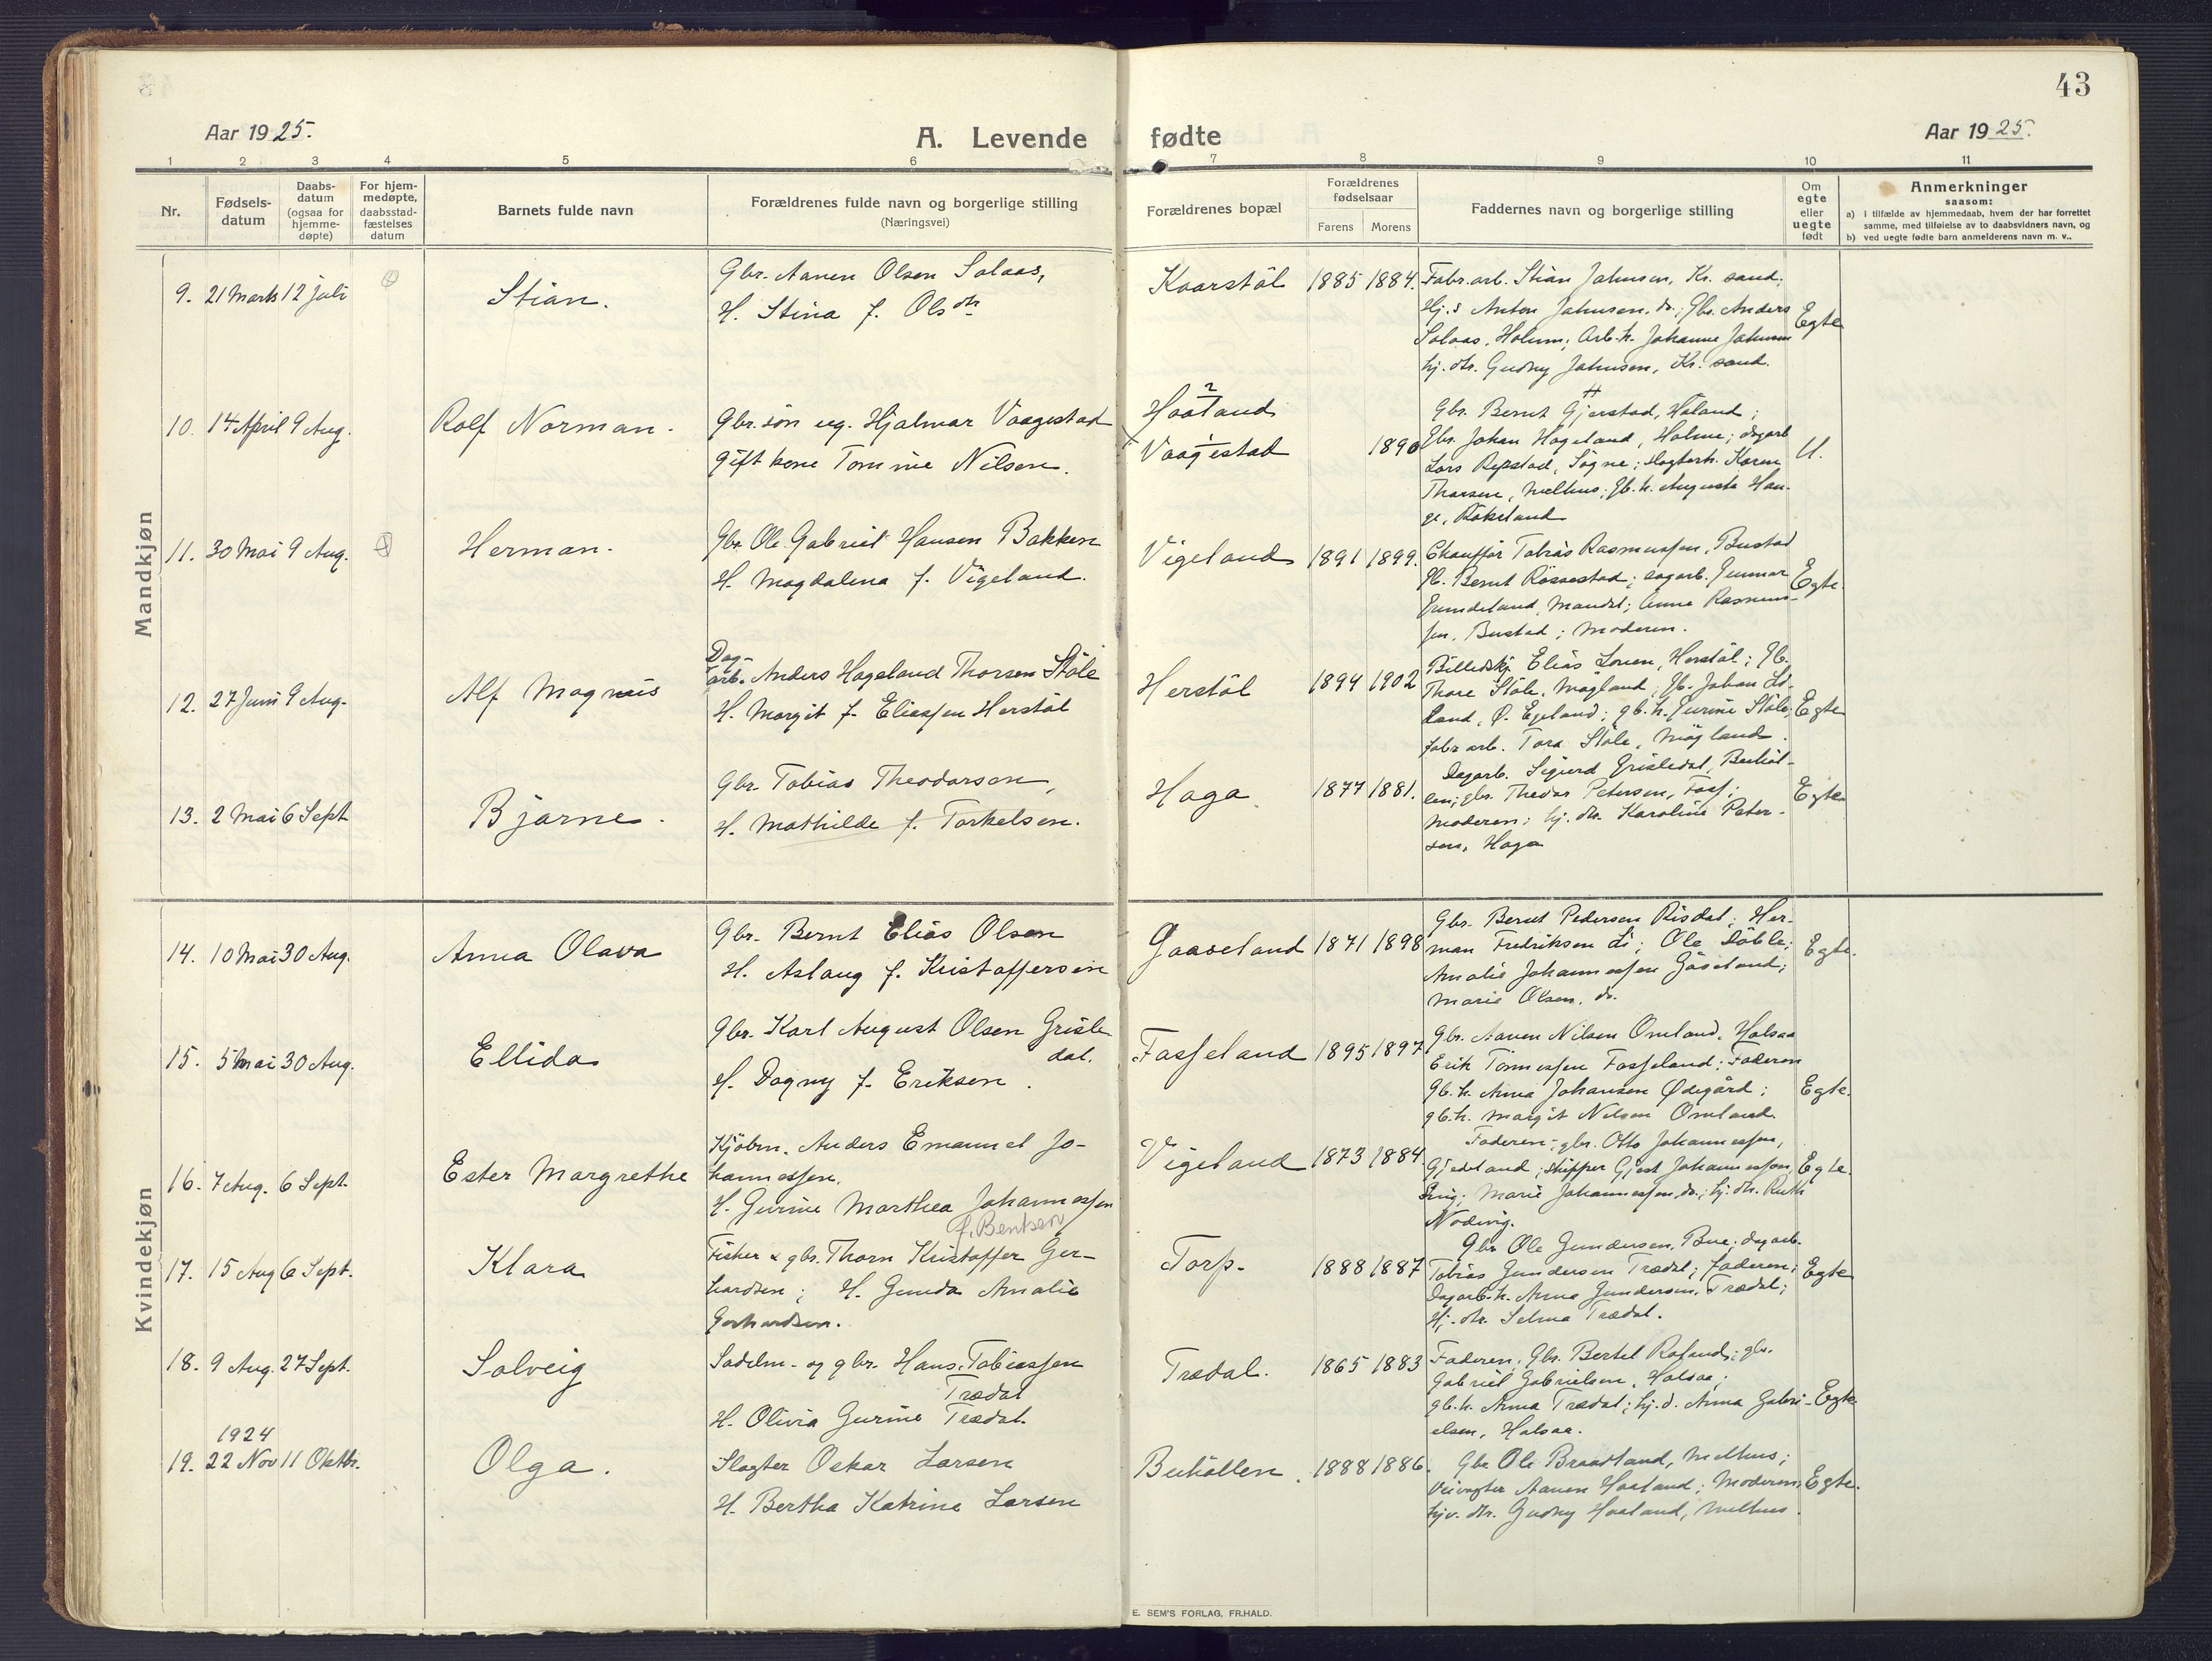 43
Aar 1925.
A. Levende fødte
Aar 1925.
1 2 3 4 5 6 7 8 9 10 11
Nr.
Fødsels-
datum
Daabs-
datum
(ogsaa for
hjemme-
døpte)
For hjem-
medøpte,
daabsstad-
fæstelses
datum
Barnets fulde navn
Forældrenes fulde navn og borgerlige stilling
(Næringsvei)
Forældrenes bopæl
Forældrenes
fødselsaar
Farens Morens
Faddernes navn og borgerlige stilling
Om
egte
eller
uegte
født
Anmerkninger
saasom:
a) i tilfælde av hjemmedaab, hvem der har forrettet
samme, med tilføielse av to daabsvidners navn, og
b) ved uegte fødte barn anmelderens navn m. v..
Mandkjøn
9. 21 Marts 12 Juli
Stian.
Gbr. Aanen Olsen Solaas,
H. Stina f. Olsdtr
Kaarstøl
1885 1884.
Fabr.arb. Stian Jahnsen, Kr. sand;
Hj.s Anton Jahnsen, do.; Gbr. Anders
Solaas, Holum; Arb.h. Johanne Jahnsen
hj. dtr. Gudny Jahnsen, Kr. sand.
Egte
10. 14 April 9 Aug.
Rolf Norman.
Gbr. søn ug. Hjalmar Vaagestad
gift kone Tomine Nilsen.
2
Haaland
1
Vaagestad
1890
Gbr. Bernt Gjerstad, Håland;
Gbr. Johan Hageland, Holme; dagarb
Lars Repstad, Søgne; slagterh. Karen
Thorsen, Melhus; gb.h. Augusta Hau-
ge, Røkeland
U.
11. 30 Mai 9 Aug.
Herman.
Gbr. Ole Gabriel Hansen Bakken
H. Magdalena f. Vigeland.
Vigeland
1891 1899.
Chauffør Tobias Rasmussen, Bustad
Gb. Bernt Røssestad; dagarb. Gunnar
Gundeland, Mandal; Anna Rasmus-
sen, Bustad; Moderen.
Egte.
12. 27 Juni 9 Aug.
Alf Magnus
Dag-
arb. Anders Hageland Thorsen Støle
H. Margit f. Eliassen Herstøl
Herstøl
1894 1902
Billedskj. Elias Loven, Herstøl; Gb.
Thore Støle, Møgland; Gb. Johan
land, Ø. Egeland; gb.h. Gurine Støle,
fabr arb. Tora Støle, Møgland.
Egte
13. 2 Mai 6 Sept
Bjarne.
Gbr. Tobias Theodorsen,
H. Mathilde f. Torkelsen.
Haga
1877 1881.
Dagarb. Sigurd Grisledal, Buhøl-
len; gbr. Thedor Petersen, Foss;
Moderen; hj. dtr. Karoline Peter-
sen, Haga
Egte
Kvindekjøn
14. 10 Mai 30 Aug.
Anna Olava
Gbr. Bernt Elias Olsen
H. Aslaug f. Kristoffersen
Gaaseland
1871 1898
Gbr. Bernt Pedersen Risdal; Her-
man Fredriksen Li; Ole Døble;
Amalie Johannessen Gåseland;
Marie Olsen, do.
Egte.
15. 5 Mai 30 Aug.
Ellida
Gbr. Karl August Olsen Grisle
dal.
H. Dagny f. Eriksen.
Fasseland
1895 1897
Gbr. Aanen Nilsen Omland, Halsaa
Erik Tønnessen Fasseland; Faderen
Gb.h. Anna Johansen Ødegård;
gb.h. Margit Nilsen Omland.
Egte.
16. 7 Aug. 6 Sept.
Ester Margrethe
Kjøbm. Anders Emanuel Jo-
hannessen,
H. Gurine Marthea Johannessen
f. Bentsen
Vigeland
1873 1884
Faderen; gbr. Otto Johannessen,
Gjedeland; skipper Gjest Johannessen,
Marie Johannessen, do.; hj. dtr. Ruth
Nodvig.
Egte.
17. 15 Aug 6 Sept.
Klara
Fisker & gbr. Thorn Kristoffer Ger-
hardsen; H. Gunda Amalie
Gerhardsen.
Torp.
1888 1887
Gbr Ole Gundersen, Bue; dagarb.
Tobias Gundersen Trædal; faderen;
Dagarb.h. Anna Gundersen, Trædal;
Hj. dtr. Selma Trædal.
Egte
18. 9 Aug. 27 Sept.
Solveig
Sadelm- og gbr. Hans Tobiassen
Trædal
H. Olivia Gurine Trædal.
Trædal.
1865 1883
Faderen; Gbr. Bertel Rosland; gbr.
Gabriel Gabrielsen, Halsaa;
gb.h. Anna Trædal; hj.d. Anna Gabri-
elsen, Halsaa.
Egte
1924
19. 22 Nov 11 Oktbr.
Olga.
Slagter Oskar Larsen
H. Bertha Katrine Larsen
Buhøllen.
1888 1886.
Gbr Ole Braadland, Melhus;
Veivogter Aanen Haaland; Moderen;
hjv. dtr. Gudny Haaland, Melhus.
Egte.
E. SEM'S FORLAG, FR.HALD.